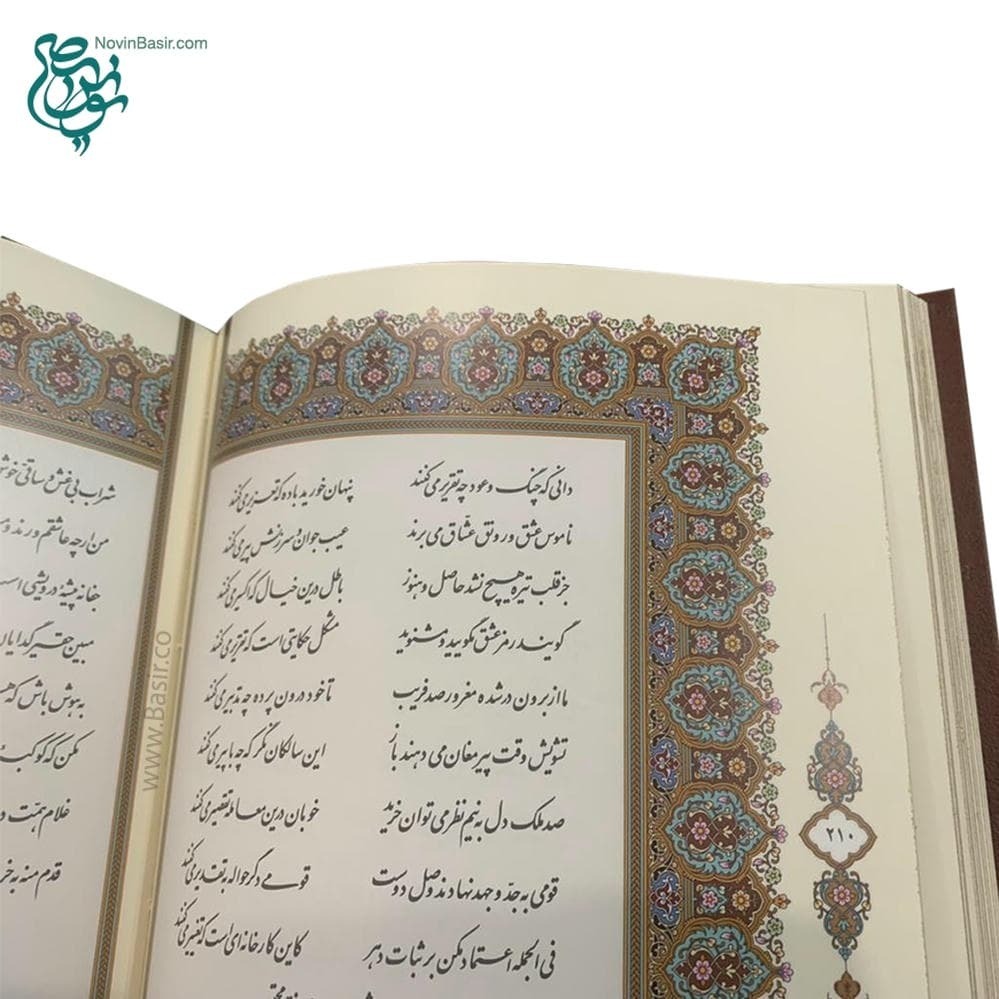 NovinBasir.com
نوین بصیر
دانی که چنگ و عود چه تقریر می‌کنند پنهان خورید باده که تعزیر می‌کنند
ناموس عشق و رونق عشّاق می‌برند عیب جوان و سرزنش پیر می‌کنند
جز قلب تیره هیچ نشد حاصل و هنوز باطل درین خیال که اکسیر می‌کنند
گویند رمز عشق مگویید و مشنوید مشکل حکایتی است که تقریر می‌کنند
ما از برون در شده مغرور صد فریب تا خود درون پرده چه تدبیر می‌کنند
تشویش وقت پیر مغان می‌دهند باز این سالکان نگر که چه با پیر می‌کنند
صد ملک دل به نیم نظر می‌توان خرید خوبان درین معامله تقصیر می‌کنند
قومی به جدّ و جهد نهادند وصل دوست قومی دگر حواله به تقدیر می‌کنند
فی الجمله اعتماد مکن بر ثبات دهر کاین کارخانه‌ای است که تغییر می‌کنند
۲۱۰
شراب بی غش و ساقی خوش
من ارچه عاشقم و رند و
جفا نه پیشهٔ درویشی است
مبین حقیر گدایان
به هوش باش که
مکن که کوکبه
غلام همّت
قدم منه به
www.Basir.co